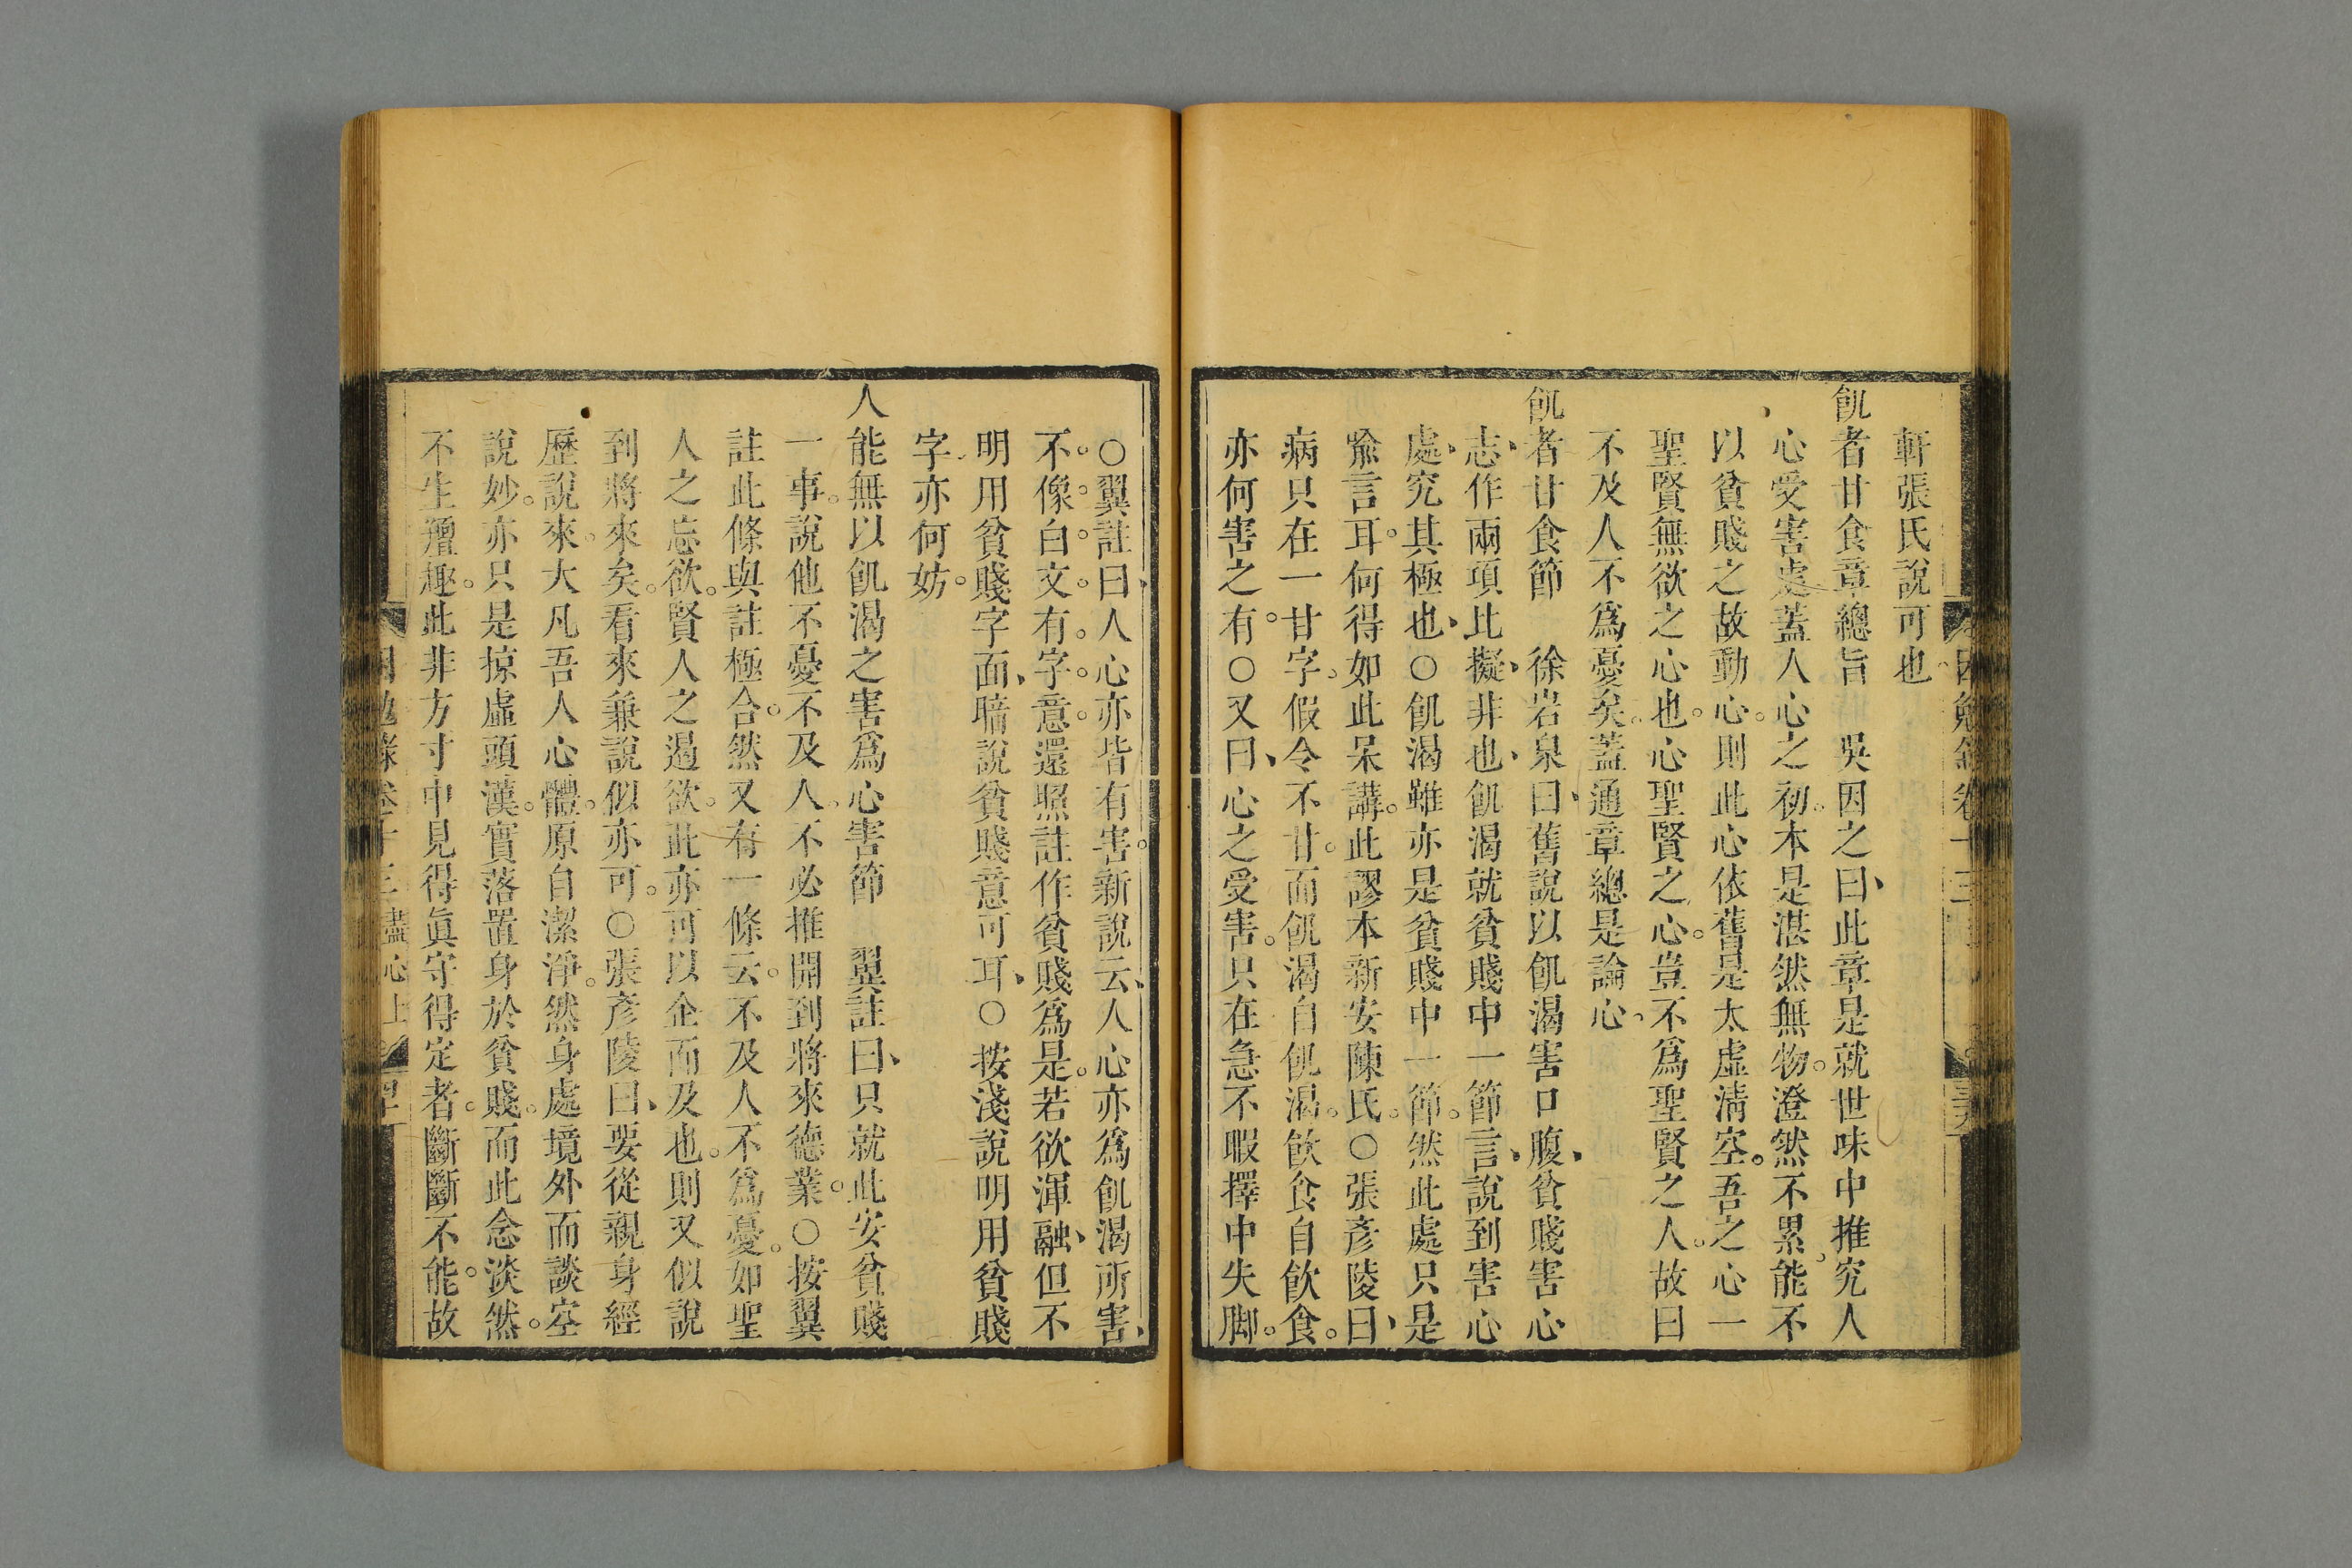 軒張氏說可也
飢者甘食章總旨　吳因之曰此章是就世味中推究人
心受害處蓋人心之初本是湛然無物澄然不累能不
以貧賤之故動心則此心依舊是太虛清空吾之心一
聖賢無欲之心也心聖賢之心豈不爲聖賢之人故曰
不及人不爲憂矣蓋通章總是論心
飢者甘食節　徐岩泉曰舊說以飢渴害口腹貧賤害心
志作兩項比擬非也飢渴就貧賤中一節言說到害心
處究其極也○飢渴雖亦是貧賤中一節然此處只是
喩言耳何得如此呆講此謬本新安陳氏○張彥陵曰
病只在一甘字假令不甘而飢渴自飢渴飮食自飮食
亦何害之有○又曰心之受害只在急不暇擇中失脚
○翼註曰人心亦皆有害新說云人心亦爲飢渴所害
不像白文有字意還照註作貧賤爲是若欲渾融但不
明用貧賤字面暗說貧賤意可耳○按淺說明用貧賤
字亦何妨
人能無以飢渴之害爲心害節　翼註曰只就此安貧賤
一事說他不憂不及人不必推開到將來德業○按翼
註此條與註極合然又有一條云不及人不爲憂如聖
人之忘欲賢人之遏欲此亦可以企而及也則又似說
到將來矣看來兼說似亦可○張彥陵曰要從親身經
歷說來大凡吾人心體原自潔淨然身處境外而談空
說妙亦只是掠虛頭漢實落置身於貧賤而此念淡然
不生羶趣此非方寸中見得眞守得定者斷斷不能故
困勉錄卷十三盡心上